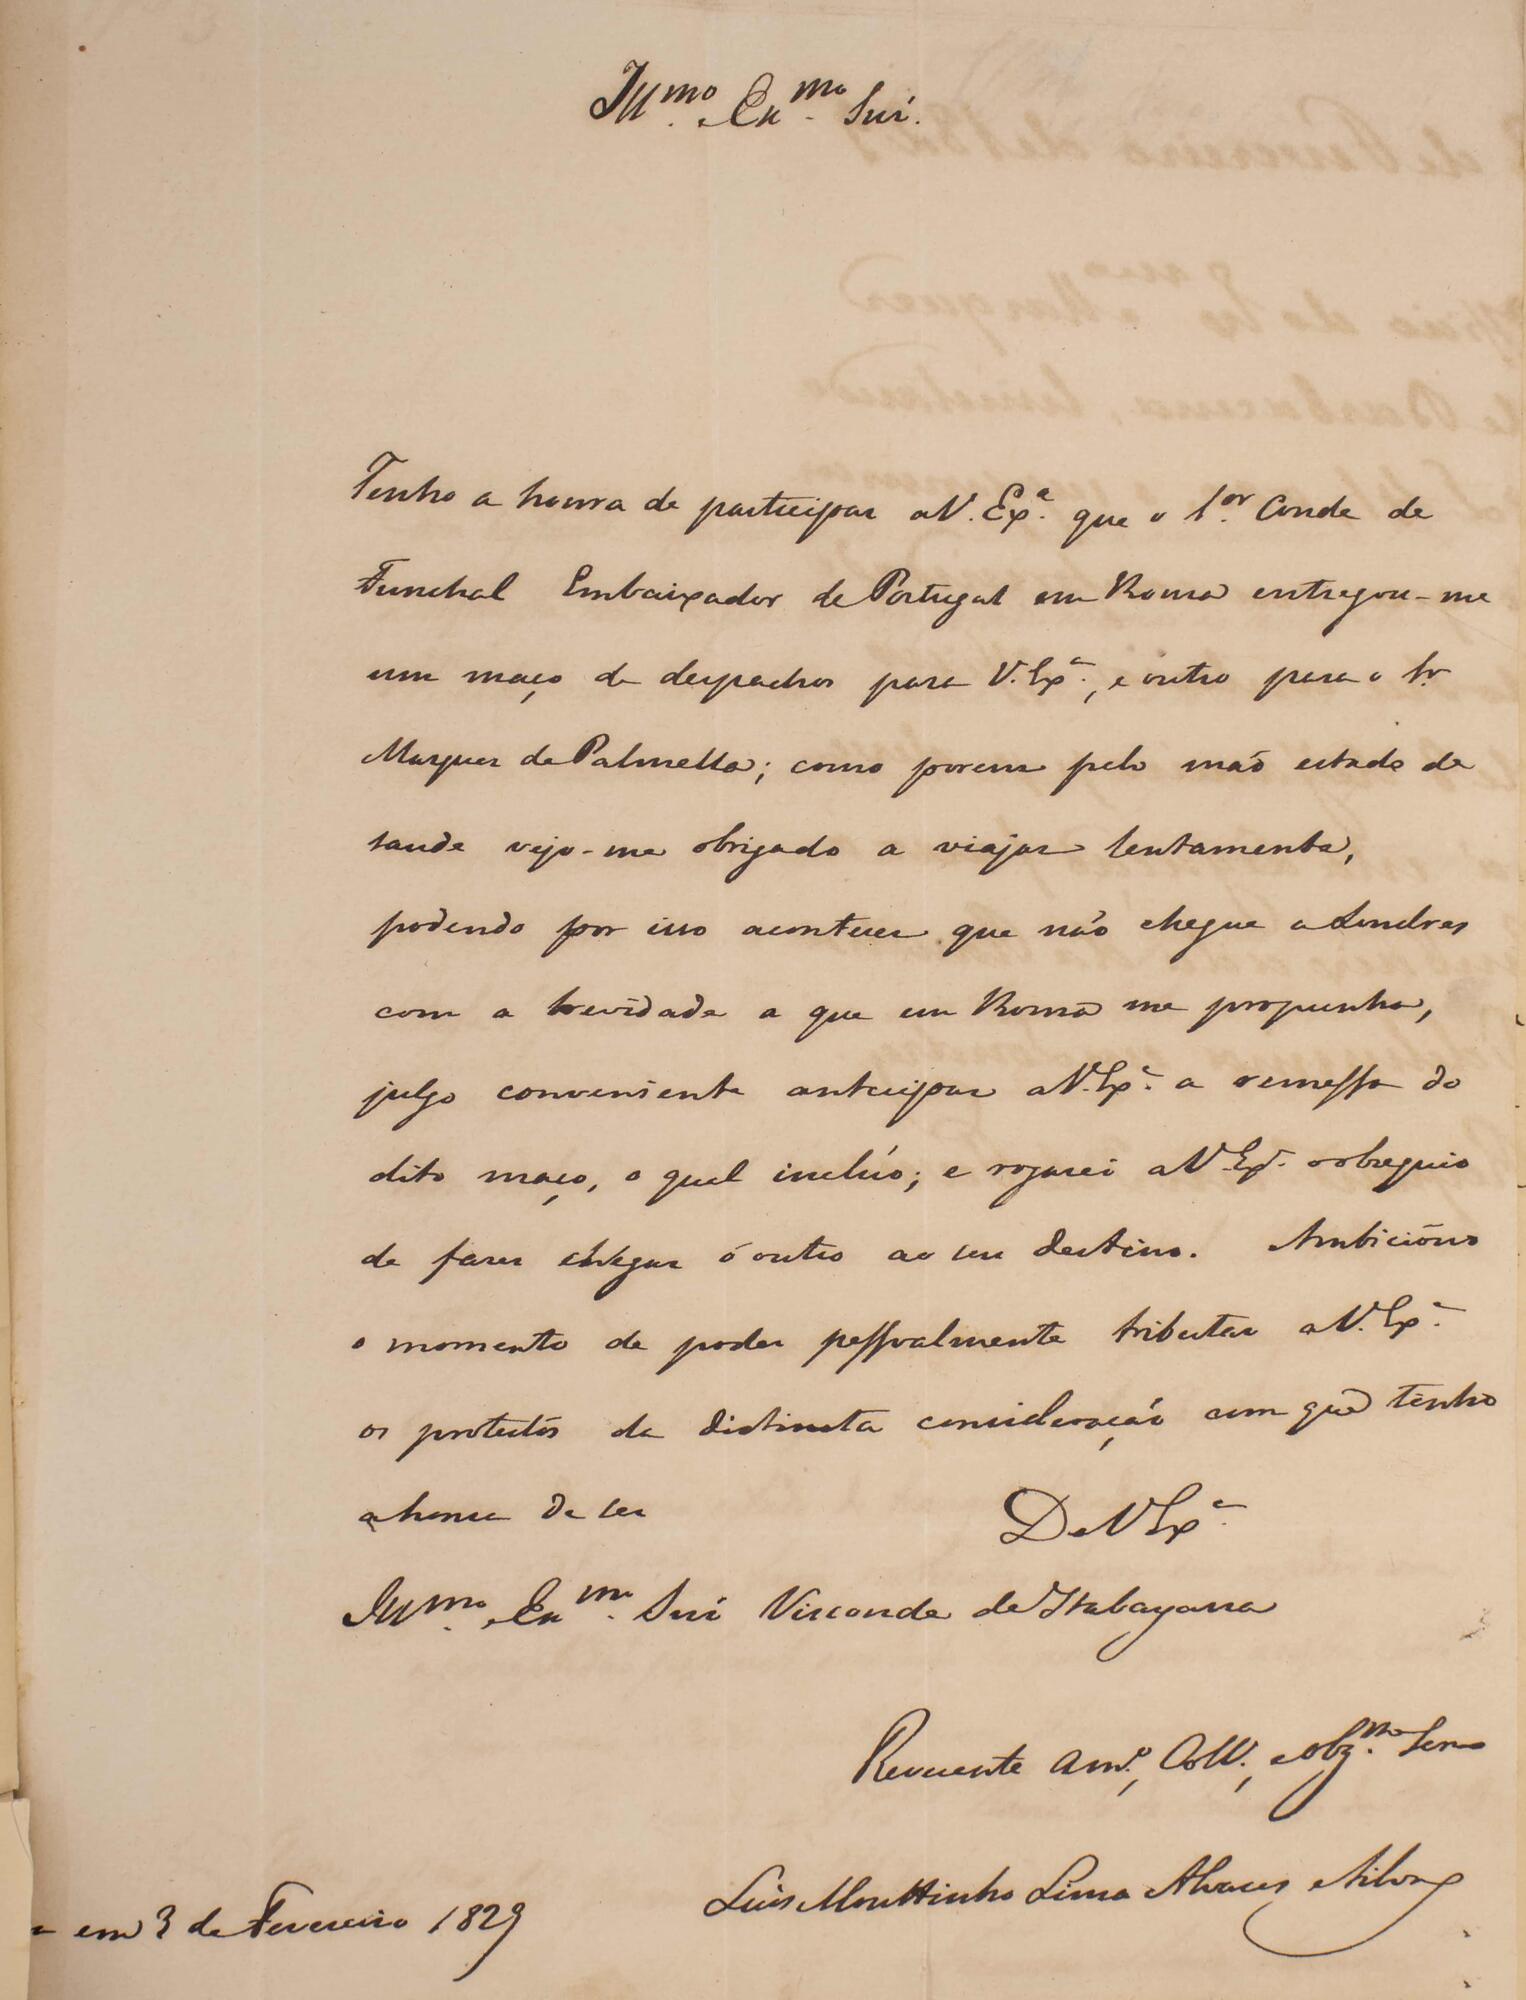 Ill.mo e Ex.mo Snr.
Tenho a honra de participar a V. Ex.a que o S.or Conde de
Funchal Embaixador de Portugal em Roma entregou-me
um maço de despachos para V. Ex.a, e outro para o Sr.
Marquez de Palmella; como porem pelo máo estado de
saude vejo-me obrigado a viajar lentamente,
podendo por isso acontecer que não chegue a Londres
com a brevidade a que em Roma me propunha,
julgo conveniente antecipar a V. Ex.a a remessa do
dito maço, o qual inclúo; e rogarei a V. Ex.a o obsequio
de fazer chegar o outro ao seu destino. Ambicióno
o momento de poder pessoalmente tributar a V. Ex.a
os protestos da distincta consideração com que tenho
a honra de ser
De V Ex.a
Ill.mo e Ex.mo Snr Visconde de Itabayana
Reverente Am.o, Coll., e obg.mo Servo
Luis Mouttinho Lima Alvares e Silva
em 3 de Fevereiro 1829